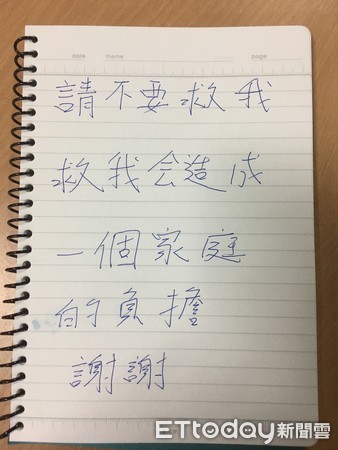 date memo page
請不要救我
救我会造成
一個家庭
的負擔
謝謝
ETtoday新聞雲